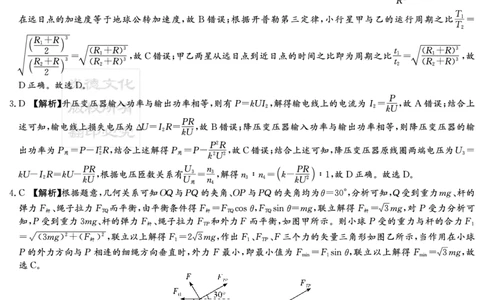 R
在远日点的加速度等于地球公转加速度,故 B 错误;根据开普勒第三定律,小行星甲与乙的运行周期之比 T₁/T₂ =
√(((R₁+R)/2)³/((R₂+R)/2)³) = √((R₁+R)³/(R₂+R)³),故 C 错误;甲乙两星从远日点到近日点的时间之比即为周期之比 t₁/t₂ = √((R₁+R)³/(R₂+R)³),故
D 正确。故选 D。
3. D 【解析】升压变压器输入功率与输出功率相等,则有 P=kUI₂,解得输电线上的电流为 I₂=P/kU,故 A 错误;结合上
述可知,输电线上损失电压为 ΔU=I₂R=PR/kU,故 B 错误;降压变压器输入功率与输出功率相等,则降压变压器的输
出功率为 P用=P−I₂²R,结合上述解得 P用=P−P²R/k²U²,故 C 错误;结合上述可知,降压变压器原线圈两端电压为 U₃=
kU−I₂R=kU−PR/kU,根据电压匝数关系有 U₃/U=n₃/n₄,解得 n₃:n₄=(k−PR/kU²):1,故 D 正确。故选 D。
4. C 【解析】根据题意,几何关系可知 OQ 与 PQ 的夹角、OP 与 PQ 的夹角均为 θ=30°,分析可知,Q 受到重力 mg、杆的
弹力 F杆、绳子拉力 FTQ 而平衡,由平衡条件得 F杆=FTQ cos θ,FTQ sin θ=mg,联立解得 F杆=√3mg,对 P 受力分析可
知,P 受到重力 3mg、杆的弹力 F杆、绳子拉力 FTP 和外力 F 而平衡,如图甲所示。则小球 P 受的重力与杆的合力 F₁
=√((3mg)²+(F杆)²),联立以上解得 F₁=2√3mg,作出 F₁、FTP、F 三个力的矢量三角形如图乙所示,当作用在小球
P 的外力方向与 P 相连的细绳方向垂直时,外力 F 最小,即最小值为 Fmin=F₁sin θ,联立以上解得 Fmin=√3mg,故
选 C。
F
FTP
30°
FTP